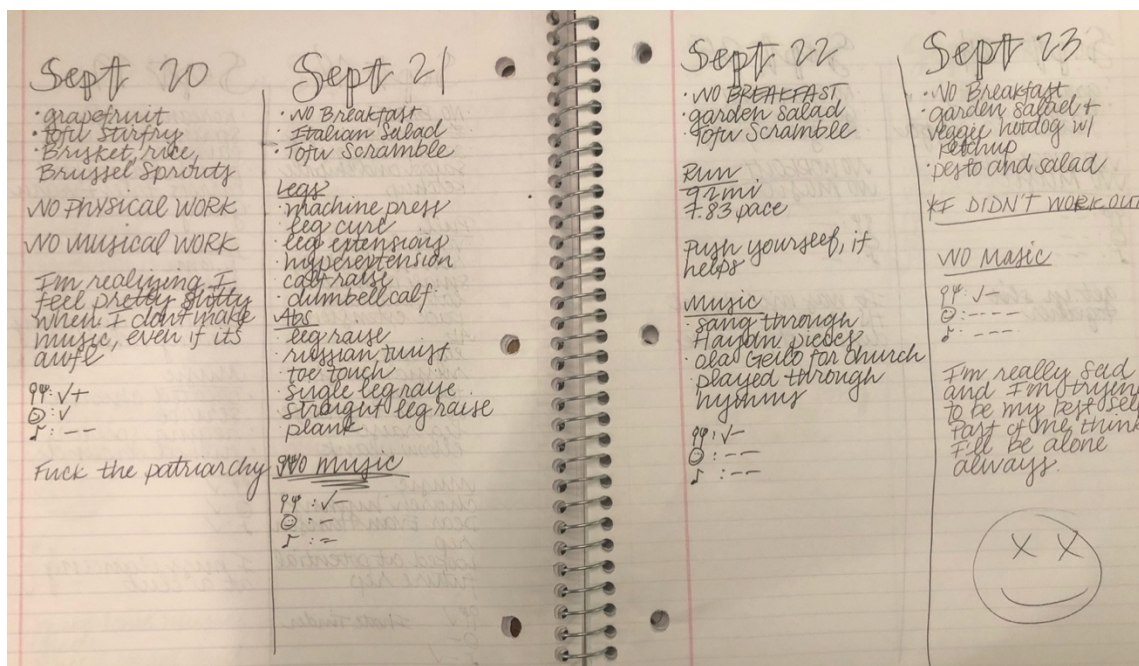 Sept 20
· grapefruit
· Tofu Stirfry
· Brisket, rice,
Brussel Sprouts
NO PHYSICAL WORK
NO MUSICAL WORK
I'm realizing I
feel pretty shitty
when I dont make
music, even if its
awfl
: √+
☺: √
♪: --
Fuck the patriarchy
Sept 21
· NO Breakfast
· Italian Salad
· Tofu Scramble
Legs
· machine press
· leg curl
· leg extensions
· hyperextension
· calf raise
· dumbell calf
Abs
· leg raise
· russian twist
· toe touch
· single leg raise
· straight leg raise
· plank
NO music
: √-
☺: -
♪: --
Sept 22
· NO BREAKFAST
· garden salad
· Tofu Scramble
Run
mi
7.83 pace
Push yourself, it
helps
Music
· sang through
Haydn pieces
· for church
· played through
hymns
: √-
☺: --
♪: ---
Sept 23
· NO Breakfast
· garden salad +
veggie hotdog w/
ketchup
· pesto and salad
*I DIDN'T WORK OUT
NO MUSIC
: √-
☺: ----
♪: ---
I'm really sad
and I'm trying
to be my best self
Part of me think
I'll be alone
always.